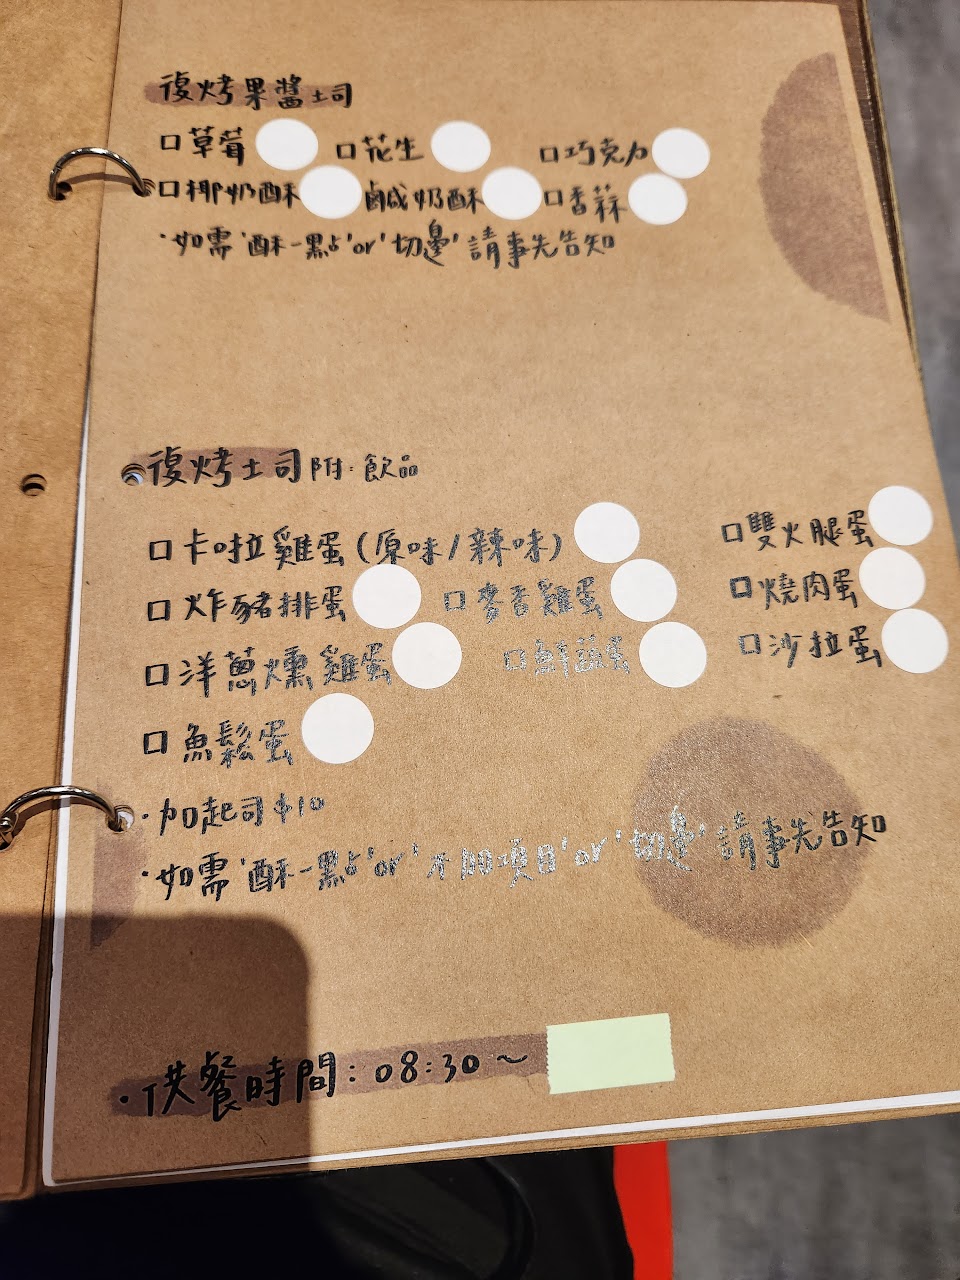 復烤果醬土司
□草莓 □花生 □巧克力
□椰奶酥 鹹奶酥 □香蒜
·如需'酥一點'or'切邊'請事先告知
復烤土司附:飲品
□卡啦雞蛋(原味/辣味) □雙火腿蛋
□炸豬排蛋 □麥香雞蛋 □燒肉蛋
□洋蔥燻雞蛋 □鮮蔬蛋 □沙拉蛋
□魚鬆蛋
·加起司$10
·如需'酥一點'or'不加項目'or'切邊'請事先告知
·供餐時間:08:30~